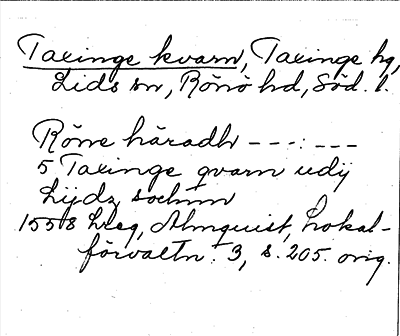 Taxinge kvarn, Taxinge hg,
Lids sn, Rönö hd, Söd. l.
Röne häradh ---:---
5 Taxinge qvarn udij
Lijdz sochnn
1558 Lreg, Almquist, Lokal-
förvaltn. 3, s. 205. orig.